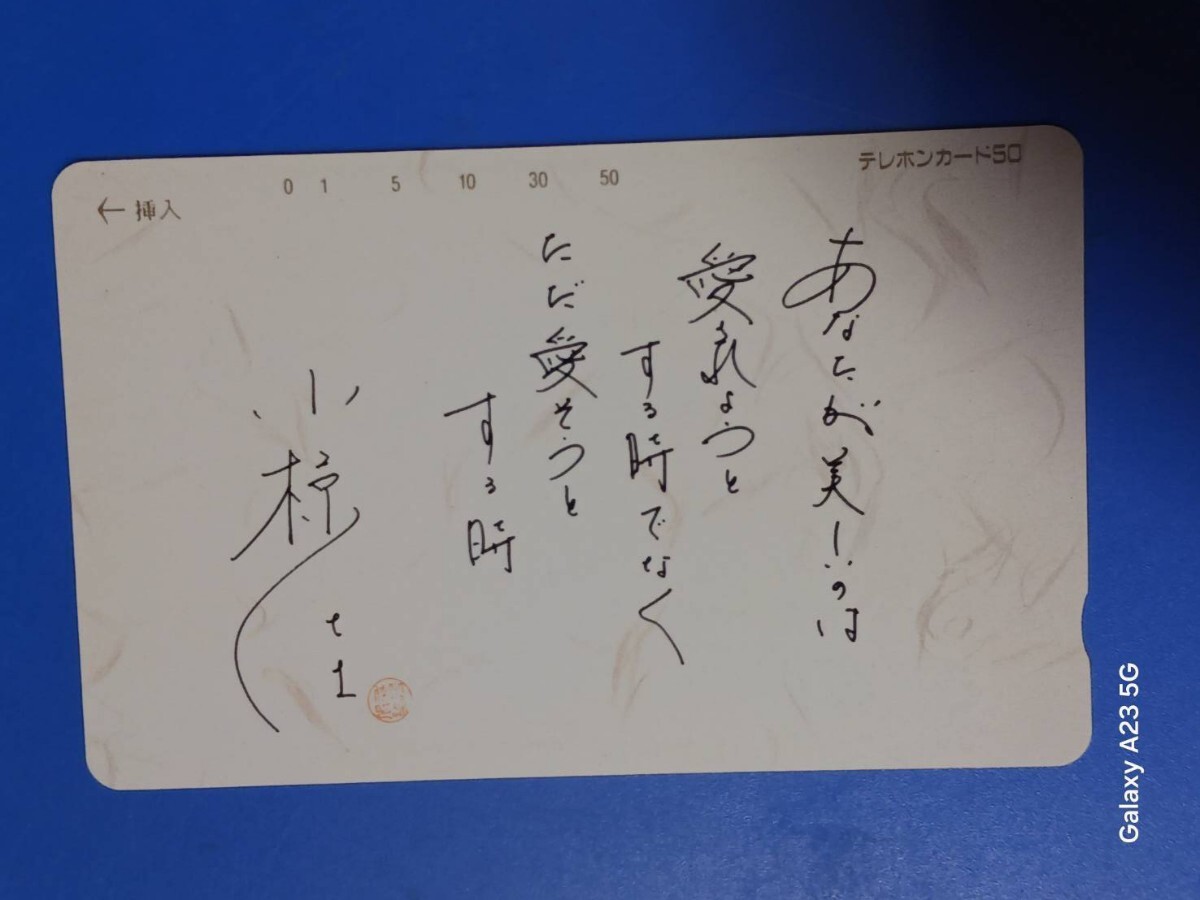 テレホンカード50
0 1 5 10 30 50
← 挿入
あなたが美しいのは
愛されようと
する時でなく
ただ愛そうと
する時
小椋
Galaxy A23 5G